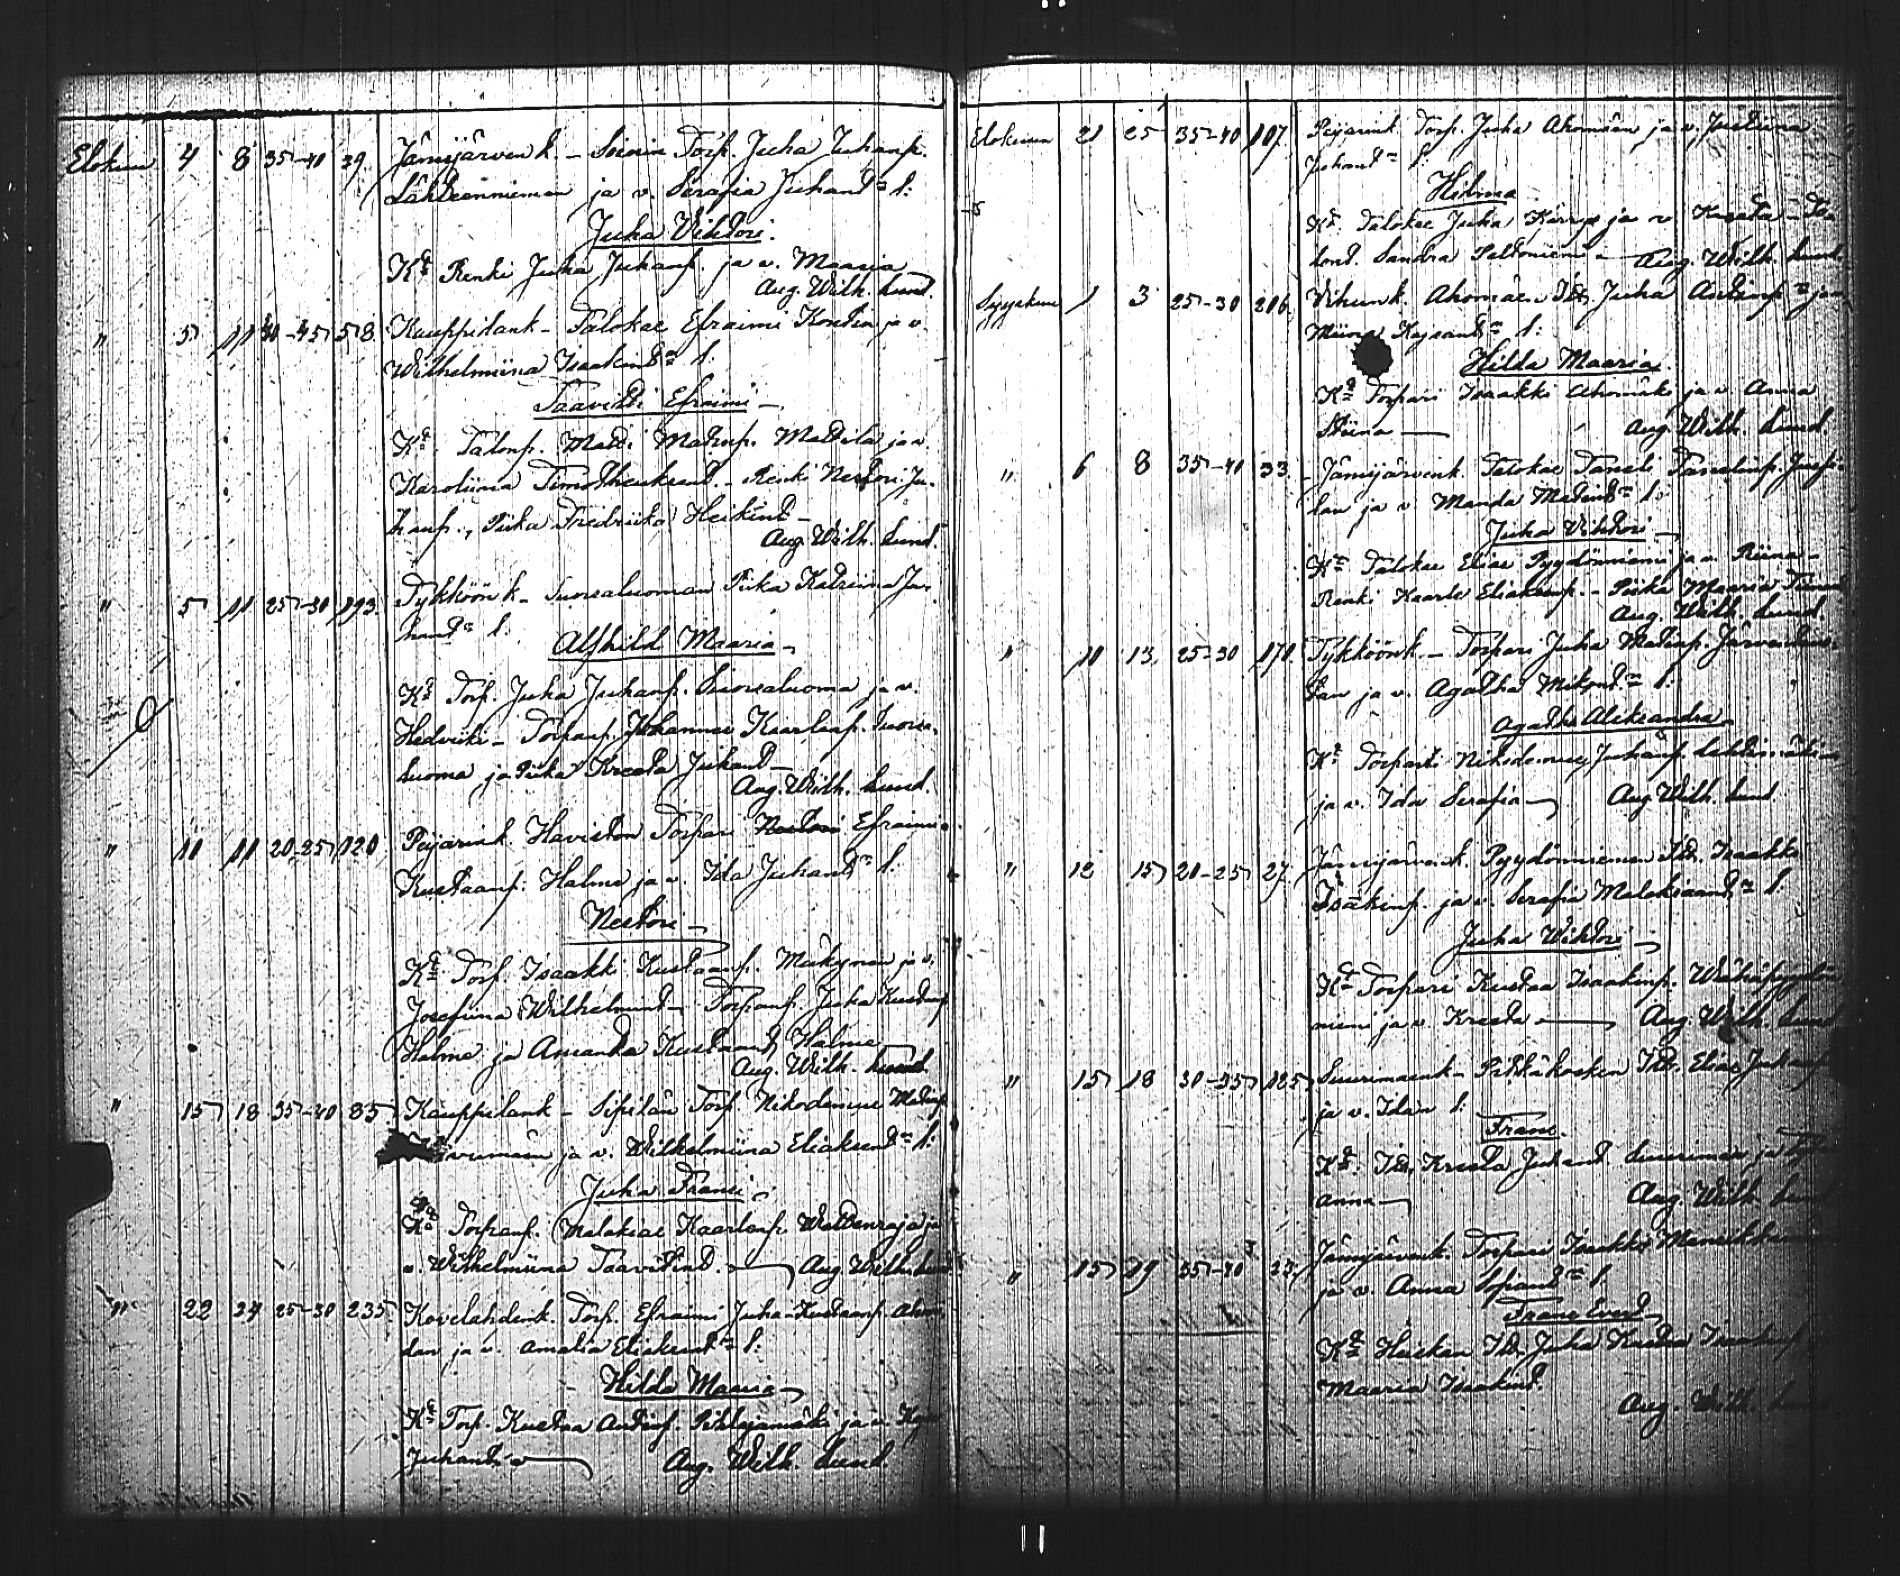 Elokuu 4 8 35-40 39. Jämijärven k. - Suonin Torp. Juha Juhanp.
Lähteenniemen ja v. Serafia Juhant:n l:
Juha Vihtori.
Kt Renki Juha Juhanp. ja v. Maaria
Aug. Wilh. Lund.
" 5 11 40-45 58 Kauppilank - Talokas Efraimi Kontin ja v.
Wilhelmiina Isaakint:n l:
Taavetti Efraimi -
Kt. Talonp. Matti Matinp. Mattila ja v.
Karoliina Timotheuksent. - Renki Nestori Ju-
hanp., Piika Fredriika Heikint -
Aug. Wilh. Lund.
" 5 11 25-30 193. Tykköön k - Suorsaluoman Piika Katriina Ju-
hant:n l:
Alfhild Maaria -
Kt Torp. Juha Juhanp. Suorsaluoma ja v.
Hedviiki - Torpanp. Johannes Kaarlenp. Suorsa-
luoma ja Piika Kreeta Juhant -
Aug. Wilh. Lund.
" 11 11 20-25 120 Peijarink. Haviston Torpari Nestori Efraimi
Kustaanp. Halme ja v. Ida Juhant:n l:
Nestori -
Kt Torp. Isaakki Kustaanp. Mäkynen ja v.
Josefiina Wilhelmint - Torpanp. Juha Kustaanp
Halme ja Amanda Kustaant Halme
Aug. Wilh. Lund.
" 15 18 35-40 85 Kauppilank - Sipilän Torp. Nikodemus Matinp
ja v. Wilhelmiina Eliaksent:n l:
Juha Fransi -
Kt Torpanp. Malakias Kaarlenp. Waltanraja ja
v. Wilhelmiina Taavetint. - Aug. Wilh. Lund
" 22 24 25-30 235 Kovelahdenk. Torp. Efraimi Juha Kustaanp.
ja v. Amalia Eliaksent:n l:
Hilda Maaria
Kt Torp. Kustaa Antinp. Pihlajamäki ja v.
Juhant. - Aug. Wilh. Lund.
Elokuun 21 25 35-40 107. Peijarink Torp. Juha Ahomäen ja v. Justiina
Juhant:n l:
Hilma
Kt. Talokas Juha Kärry ja v Kreeta - Ta-
lont. Sandra Peltoniemi - Aug. Wilh. Lund.
Syyskuu 1 3 25-30 206 Vihunk. Ahomäen Its. Juha Antinp ja v
Miina Kaysant:n l:
Hilda Maaria.
Kt Torpari Isaakki Ahomäki ja v. Anna
Stiina - Aug. Wilh. Lund.
" 6 8 35-40 33. Jämijärvenk. Talokas Taneli Tanelinp.
ja v. Manda Matint:n l:
Juha Vihtori -
Kt Talokas Elias Pyydönniemi ja v. Riina -
Renki Kaarle Eliaksenp. - Piika Maaria
Aug. Wilh. Lund.
" 10 13. 25-30 170. Tykköönk. - Torpari Juha Matinp.
ja v. Agatha Mikont:n l:
Agatha Aleksandra
Kt Torpari Nikodemus Juhanp.
ja v. Ida Serafia - Aug. Wilh. Lund
" 12 15 20-25 27. Jämijärvenk. Pyydönniemen Its. Isaakki
Isakinp. ja v. Serafia Malakiaant:n l:
Juha Wihtori -
Kt Torpari Kustaa Isaakinp.
niemi ja v. Kreeta - Aug. Wilh. Lund
" 15 18 30-35 125 Suurimaank - Pitkäkosken Its. Elias Juhanp
ja v. Idan l:
Frans.
Kt. Its. Kreeta Juhant. Suurimaa ja
Anna - Aug. Wilh. Lund
" 15 19 35-40 23. Jämijärvenk. Torpari Isaakki
ja v. Anna l:
Frans Evert -
Kt Its. Juha Kustaa Isaakinp
Maaria Isaakint.
Aug. Wilh. Lund